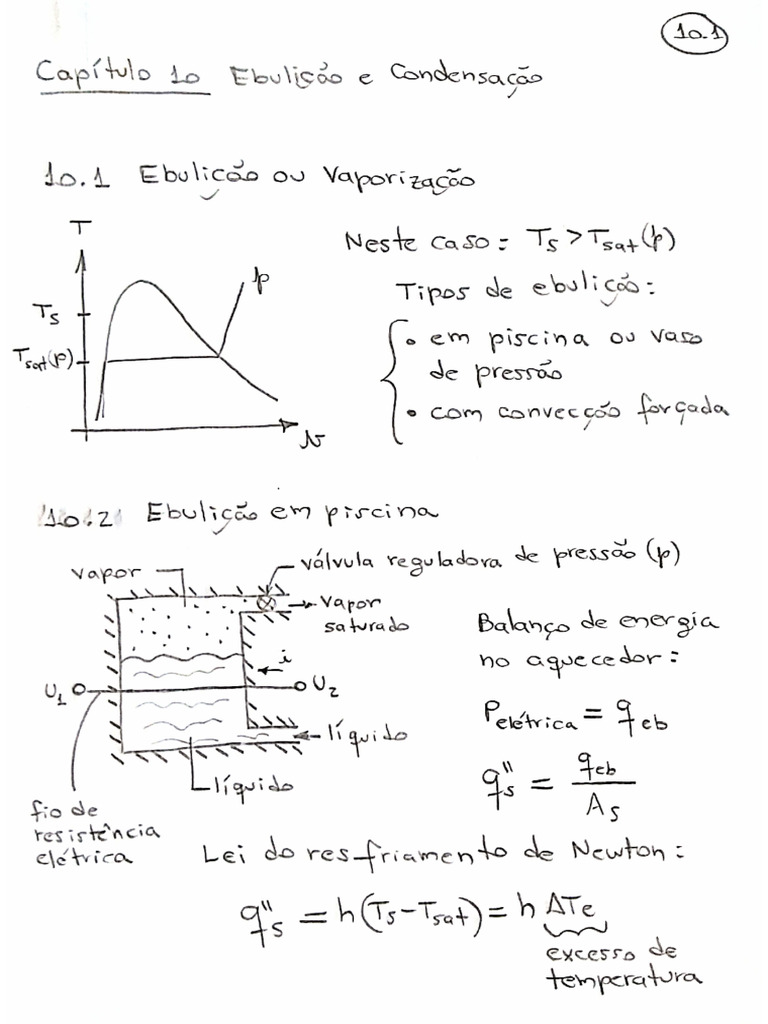 10.1
Capítulo 10 Ebulição e Condensação
10.1 Ebulição ou Vaporização
T
Ts
Tsat(p)
p
v
Neste caso: Ts > Tsat(p)
Tipos de ebulição:
• em piscina ou vaso
de pressão
• com convecção forçada
10.2 Ebulição em piscina
vapor
válvula reguladora de pressão (p)
vapor
saturado
i
U1
U2
líquido
líquido
fio de
resistência
elétrica
Balanço de energia
no aquecedor:
Pelétrica = qeb
q"s = qeb / As
Lei do resfriamento de Newton:
q"s = h(Ts - Tsat) = h ΔTe
excesso de
temperatura